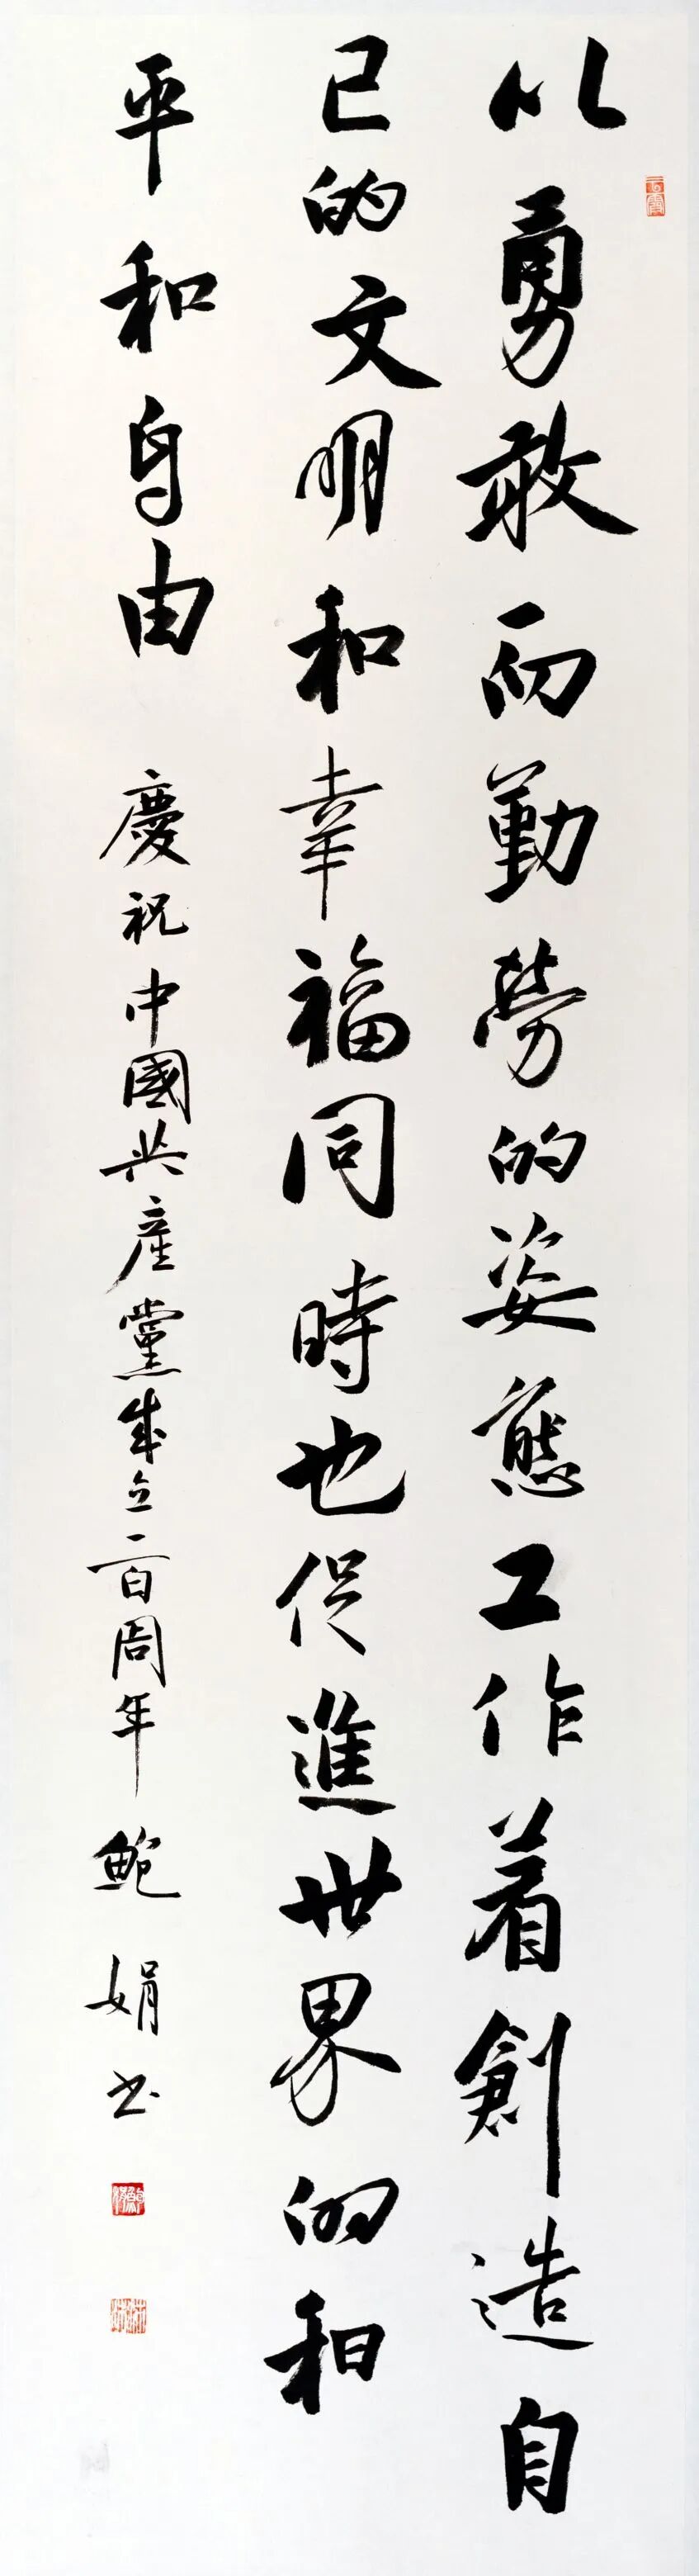 以勇敢而勤勞的姿態工作着創造自
己的文明和幸福同時也促進世界的和
平和自由 慶祝中國共産黨成立一百周年 鮑娟书